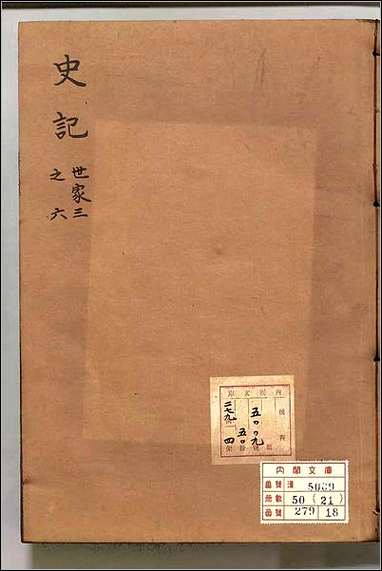 史記
世家三
之六
內閣文庫
番號 漢 5009
冊數 50 (21)
函號 279 18
五〇〇九
五〇
二七九
四